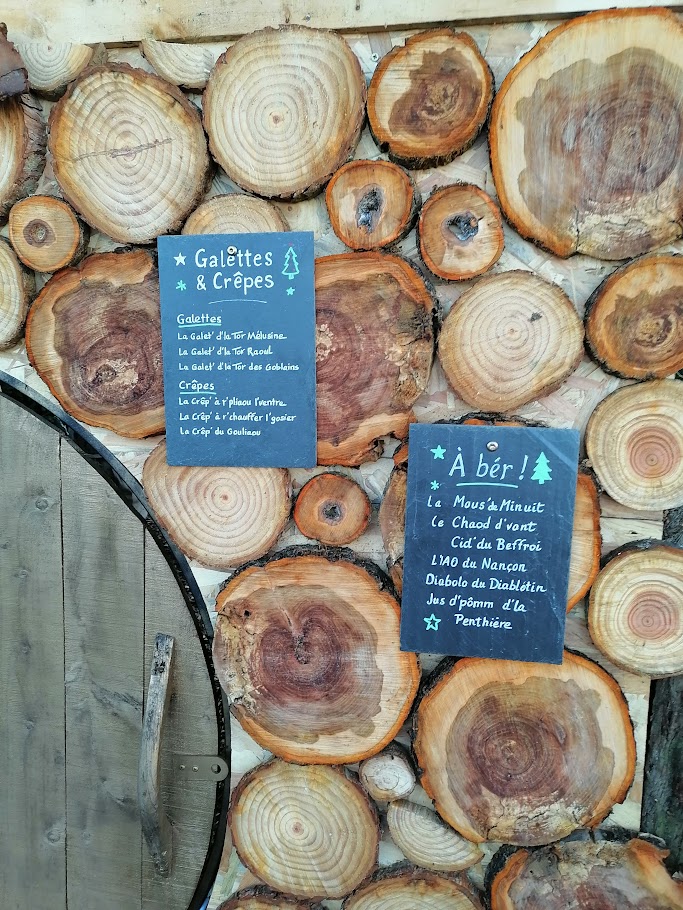 Galettes
& Crêpes
Galettes
La Galet' d'la Tor Mélusine
La Galet' d'la Tor Raoul
La Galet' d'la Tor des Gobelins
Crêpes
La Crêp' à r'pliaou l'ventre
La Crêp' à r'chauffer l'gosier
La Crêp' du Gouliaou
À bér !
La Mous' de Minuit
Le Chaod d'vont
Cid' du Beffroi
L'IAO du Nançon
Diabolo du Diablótin
Jus d'pômm d'la
Penthiére